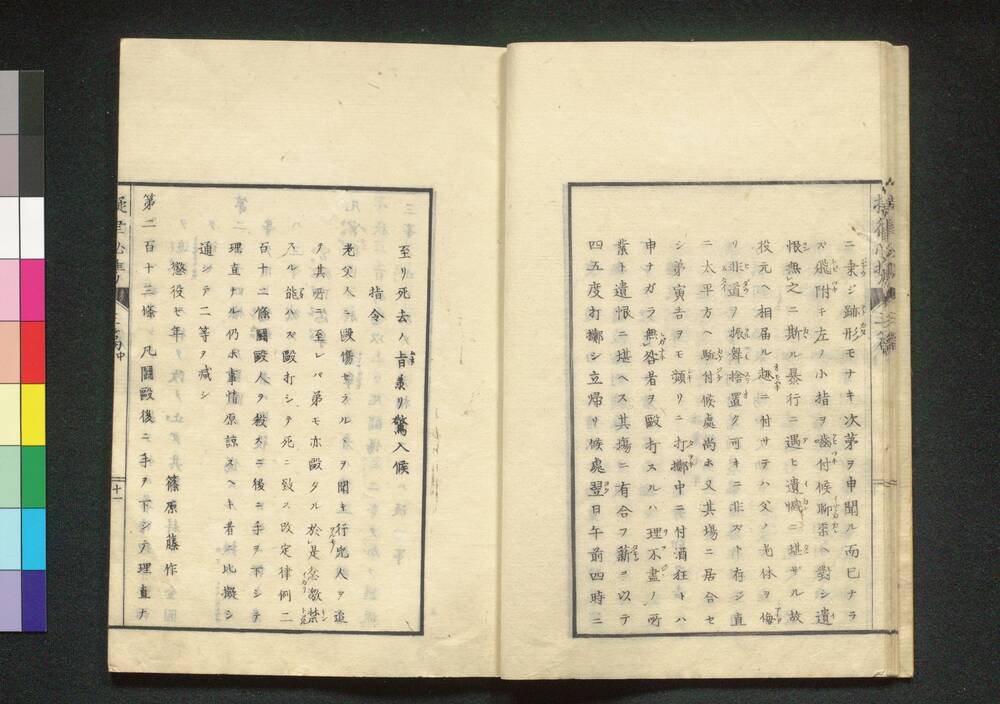 ニ乗シ跡形モナキ次苐ヲ申聞ル而已ナラ
ス飛附キ左ノ小指ヲ噛付候聊栄ヘ對シ遺
恨無之ニ斯ル暴行ニ遇ヒ遺憾ニ堪ザル故
役元ヘ相届ル趣ニ付サテハ父ノ老体ヲ侮
リ非道ノ振舞捨置ク可キニ非ズト存シ直
ニ太平方ヘ駈付候處尚ホ又其場ニ居合セ
シ弟寅吉ヲモ頻リニ打擲中ニ付酒狂トハ
申ナガラ無咎者ヲ毆打スルハ理不盡ノ所
業ト遺恨ニ堪ヘス其塲ニ有合フ薪ヲ以テ
四五度打擲シ立帰リ候處翌日午前四時ニ
至リ死去ノ旨承リ驚入候
指令
老父人ニ毆傷セラルヽヲ聞キ行兇人ヲ追
ヲ其所ニ至レバ弟モ亦毆タル於是忿激禁
スル能ハズ毆打シテ死ニ致ス改定律例二
百十二條鬪毆人ヲ殺スニ後ニ手ヲ下シテ
理直ナル仍ホ事情原諒スヘキ者ニ比擬シ
通シテ二等ヲ减シ
懲役七年 篠原藤作
第二百十三條 凡鬪毆後ニ手ヲ下シテ理直ナ
十一